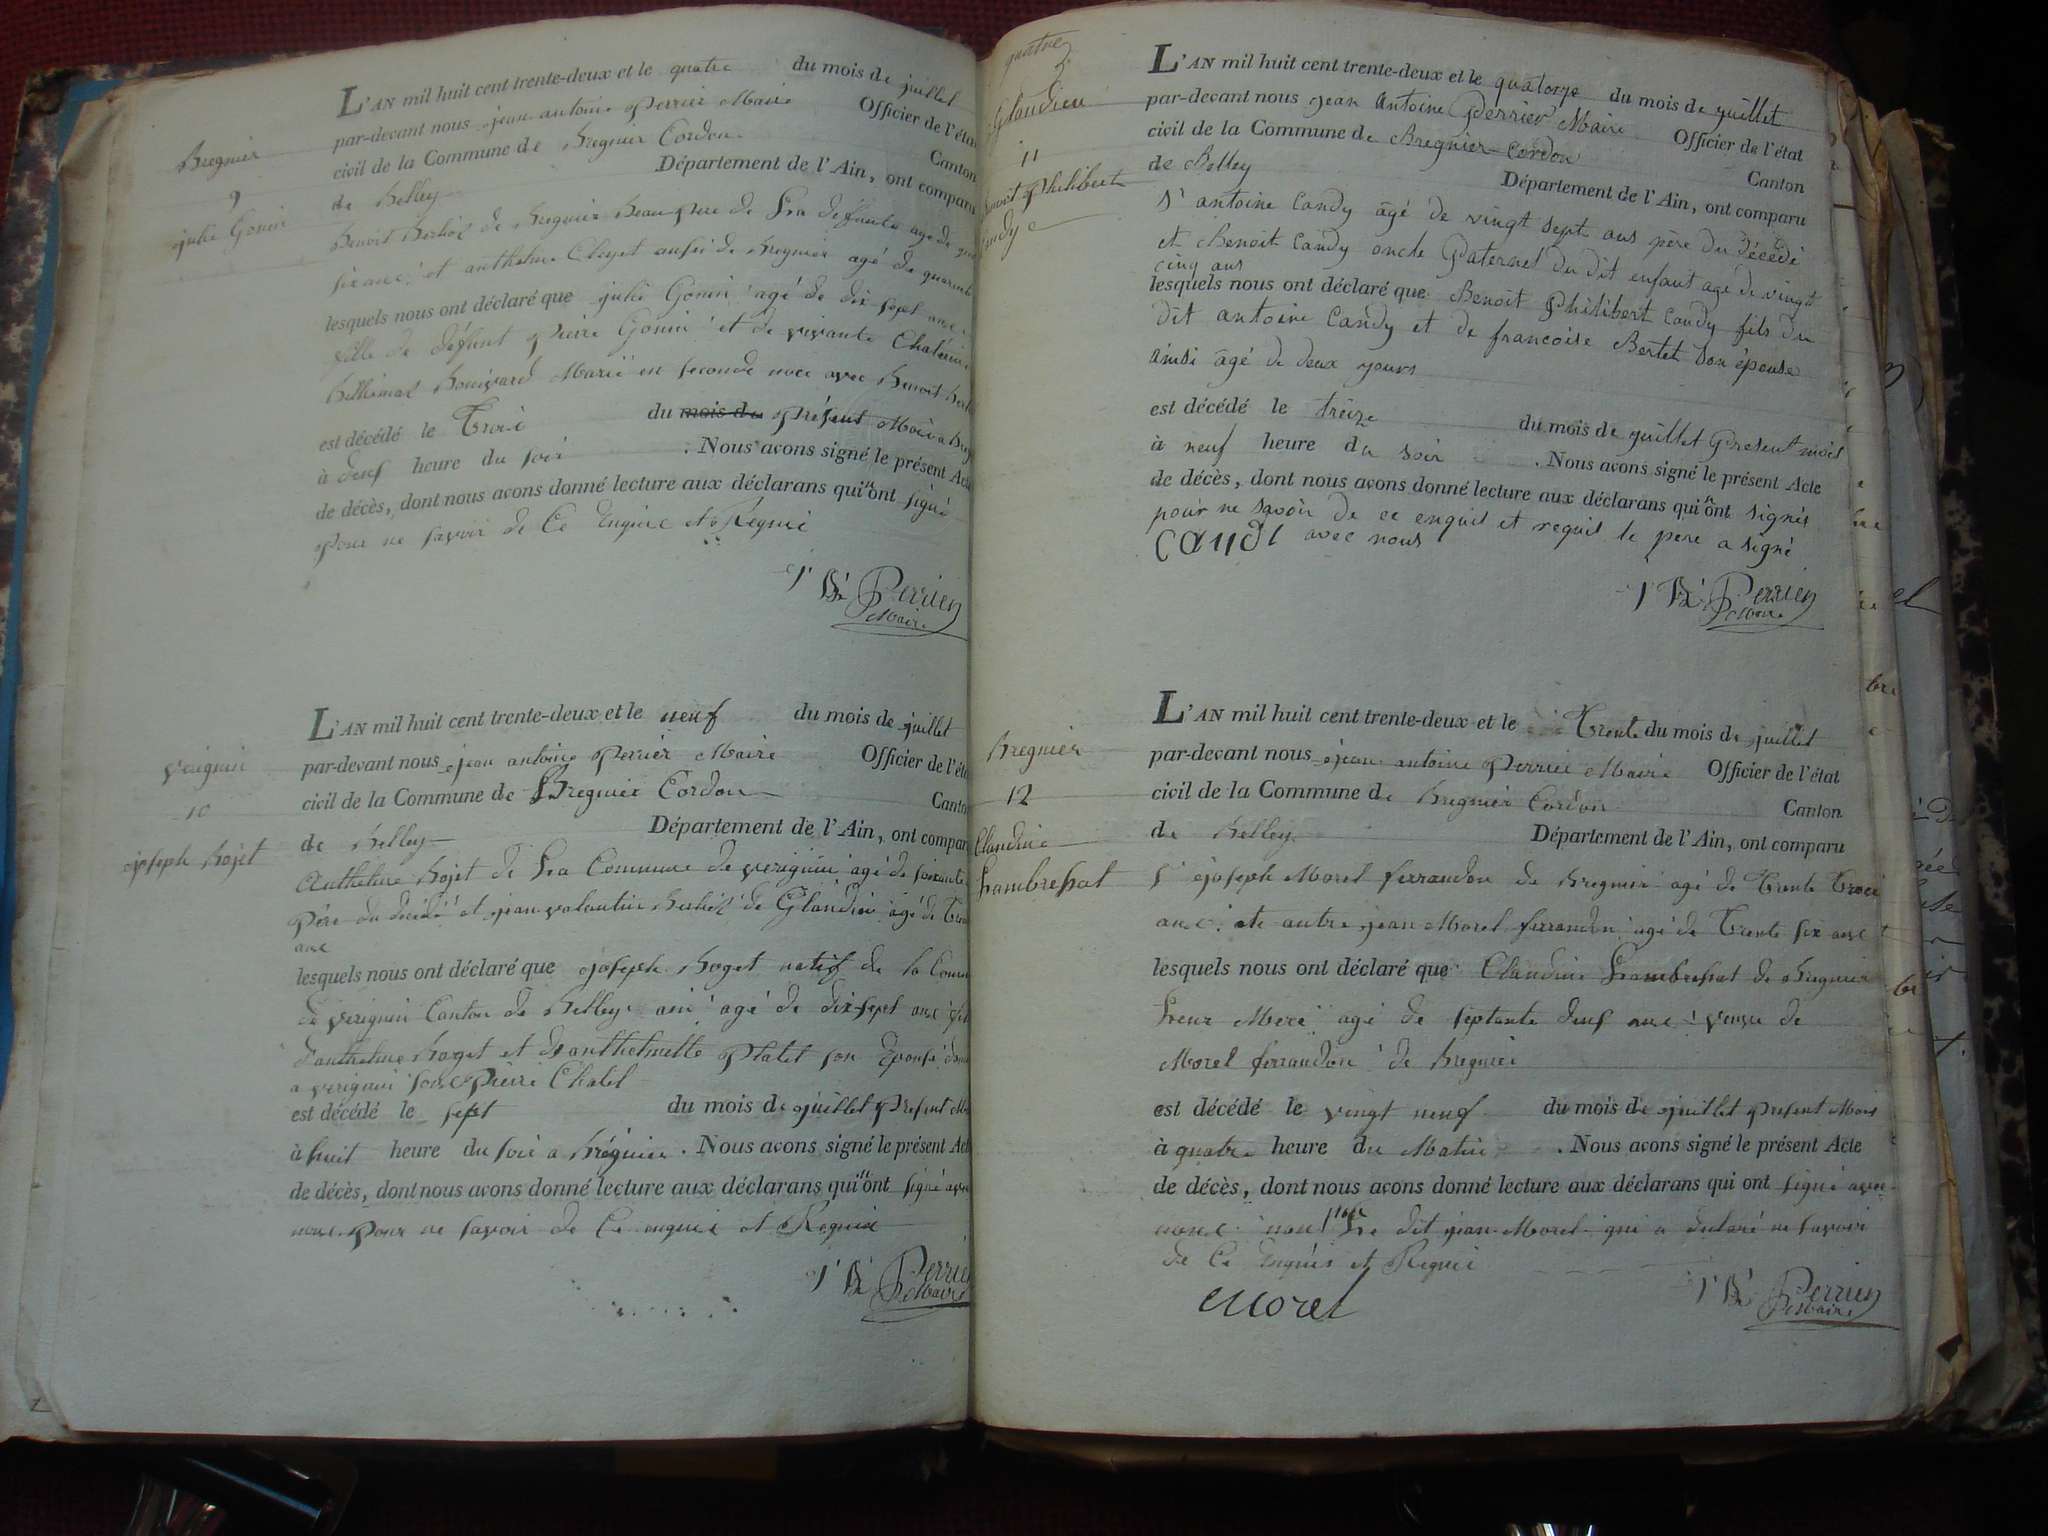 Bregnier
9
julie Gonin
L'AN mil huit cent trente-deux et le quatre du mois de juillet
par-devant nous jean antoine perrier Maire Officier de l'état
civil de la Commune de Bregnier Cordon Canton
de Belley Département de l'Ain, ont comparu
Benoit Berlioz de Bregnier Beau pere de La défunte agé de
six ans et anthelme Clayet aussi de Bregnier agé de quarante
lesquels nous ont déclaré que julie Gonin agé de dix sept ans
fille de défunt pierre Gonin et de vivante
Marié en seconde noce avec Benoit
est décédé le Trois du mois de présent Mois a
à neuf heure du soir . Nous avons signé le présent Acte
de décès, dont nous avons donné lecture aux déclarans qui n'ont signé
pour ne savoir de Ce Enquis et Requis
Perrier
Maire
verignin
10
joseph Rojet
L'AN mil huit cent trente-deux et le neuf du mois de juillet
par-devant nous jean antoine perrier Maire Officier de l'état
civil de la Commune de Bregnier Cordon Canton
de Belley Département de l'Ain, ont comparu
Anthelme Rojet de La Commune de verignin agé de soixante
père du décédé et jean valentin Berlioz de Glandieu agé de
ans
lesquels nous ont déclaré que joseph Roget natif de la
de verignin Canton de Belley ain agé de dix-sept ans fils
d'anthelme Roget et d'anthelmette platet son Epouse
a verignin
est décédé le sept du mois de juillet présent
à huit heure du soir a Brégnier . Nous avons signé le présent Acte
de décès, dont nous avons donné lecture aux déclarans qui n'ont signé avec
nous pour ne savoir de Ce enquis et Requis
Perrier
Maire
quatre
Glandieu
11
Benoit philibert
Candy
L'AN mil huit cent trente-deux et le quatorze du mois de juillet
par-devant nous jean Antoine Perrier Maire Officier de l'état
civil de la Commune de Bregnier Cordon Canton
de Belley Département de l'Ain, ont comparu
Sr antoine Candy âgé de vingt sept ans père du décédé
et Benoit Candy oncle Paternel du dit enfant agé de vingt
cinq ans
lesquels nous ont déclaré que Benoit Philibert Candy fils du
dit antoine Candy et de francoise Bertet son épouse
ainsi âgé de deux jours
est décédé le treize du mois de juillet present mois
à neuf heure du soir . Nous avons signé le présent Acte
de décès, dont nous avons donné lecture aux déclarans qui n'ont signés
pour ne savoir de ce enquis et requis le pere a signé
CANDI avec nous
Perrier
Maire
Bregnier
12
Claudine
L'AN mil huit cent trente-deux et le Trente du mois de juillet
par-devant nous jean antoine perrier Maire Officier de l'état
civil de la Commune de Bregnier Cordon Canton
de Belley Département de l'Ain, ont comparu
Sr joseph Morel ferrandon de Bregnier agé de Trente Trois
ans et autre jean Morel ferrandon agé de Trente six ans
lesquels nous ont déclaré que Claudine de Bregnier
Leur Mere agé de septante neuf ans veuve de
Morel ferrandon de Bregnier
est décédé le vingt neuf du mois de juillet présent Mois
à quatre heure du Matin . Nous avons signé le présent Acte
de décès, dont nous avons donné lecture aux déclarans qui ont signé avec
nous non Le dit jean Morel qui a declaré ne savoir
de Ce Enquis et Requis
Morel
Perrier
Maire